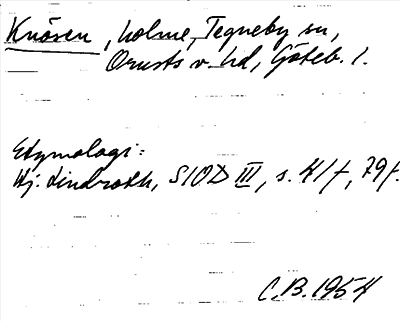 Knösen, holme, Tegneby sn,
Orusts v. hd, Göteb. l.
Etymologi:
Hj. Lindroth, SIOD III, s. 41 f, 79 f.
C.B. 1954